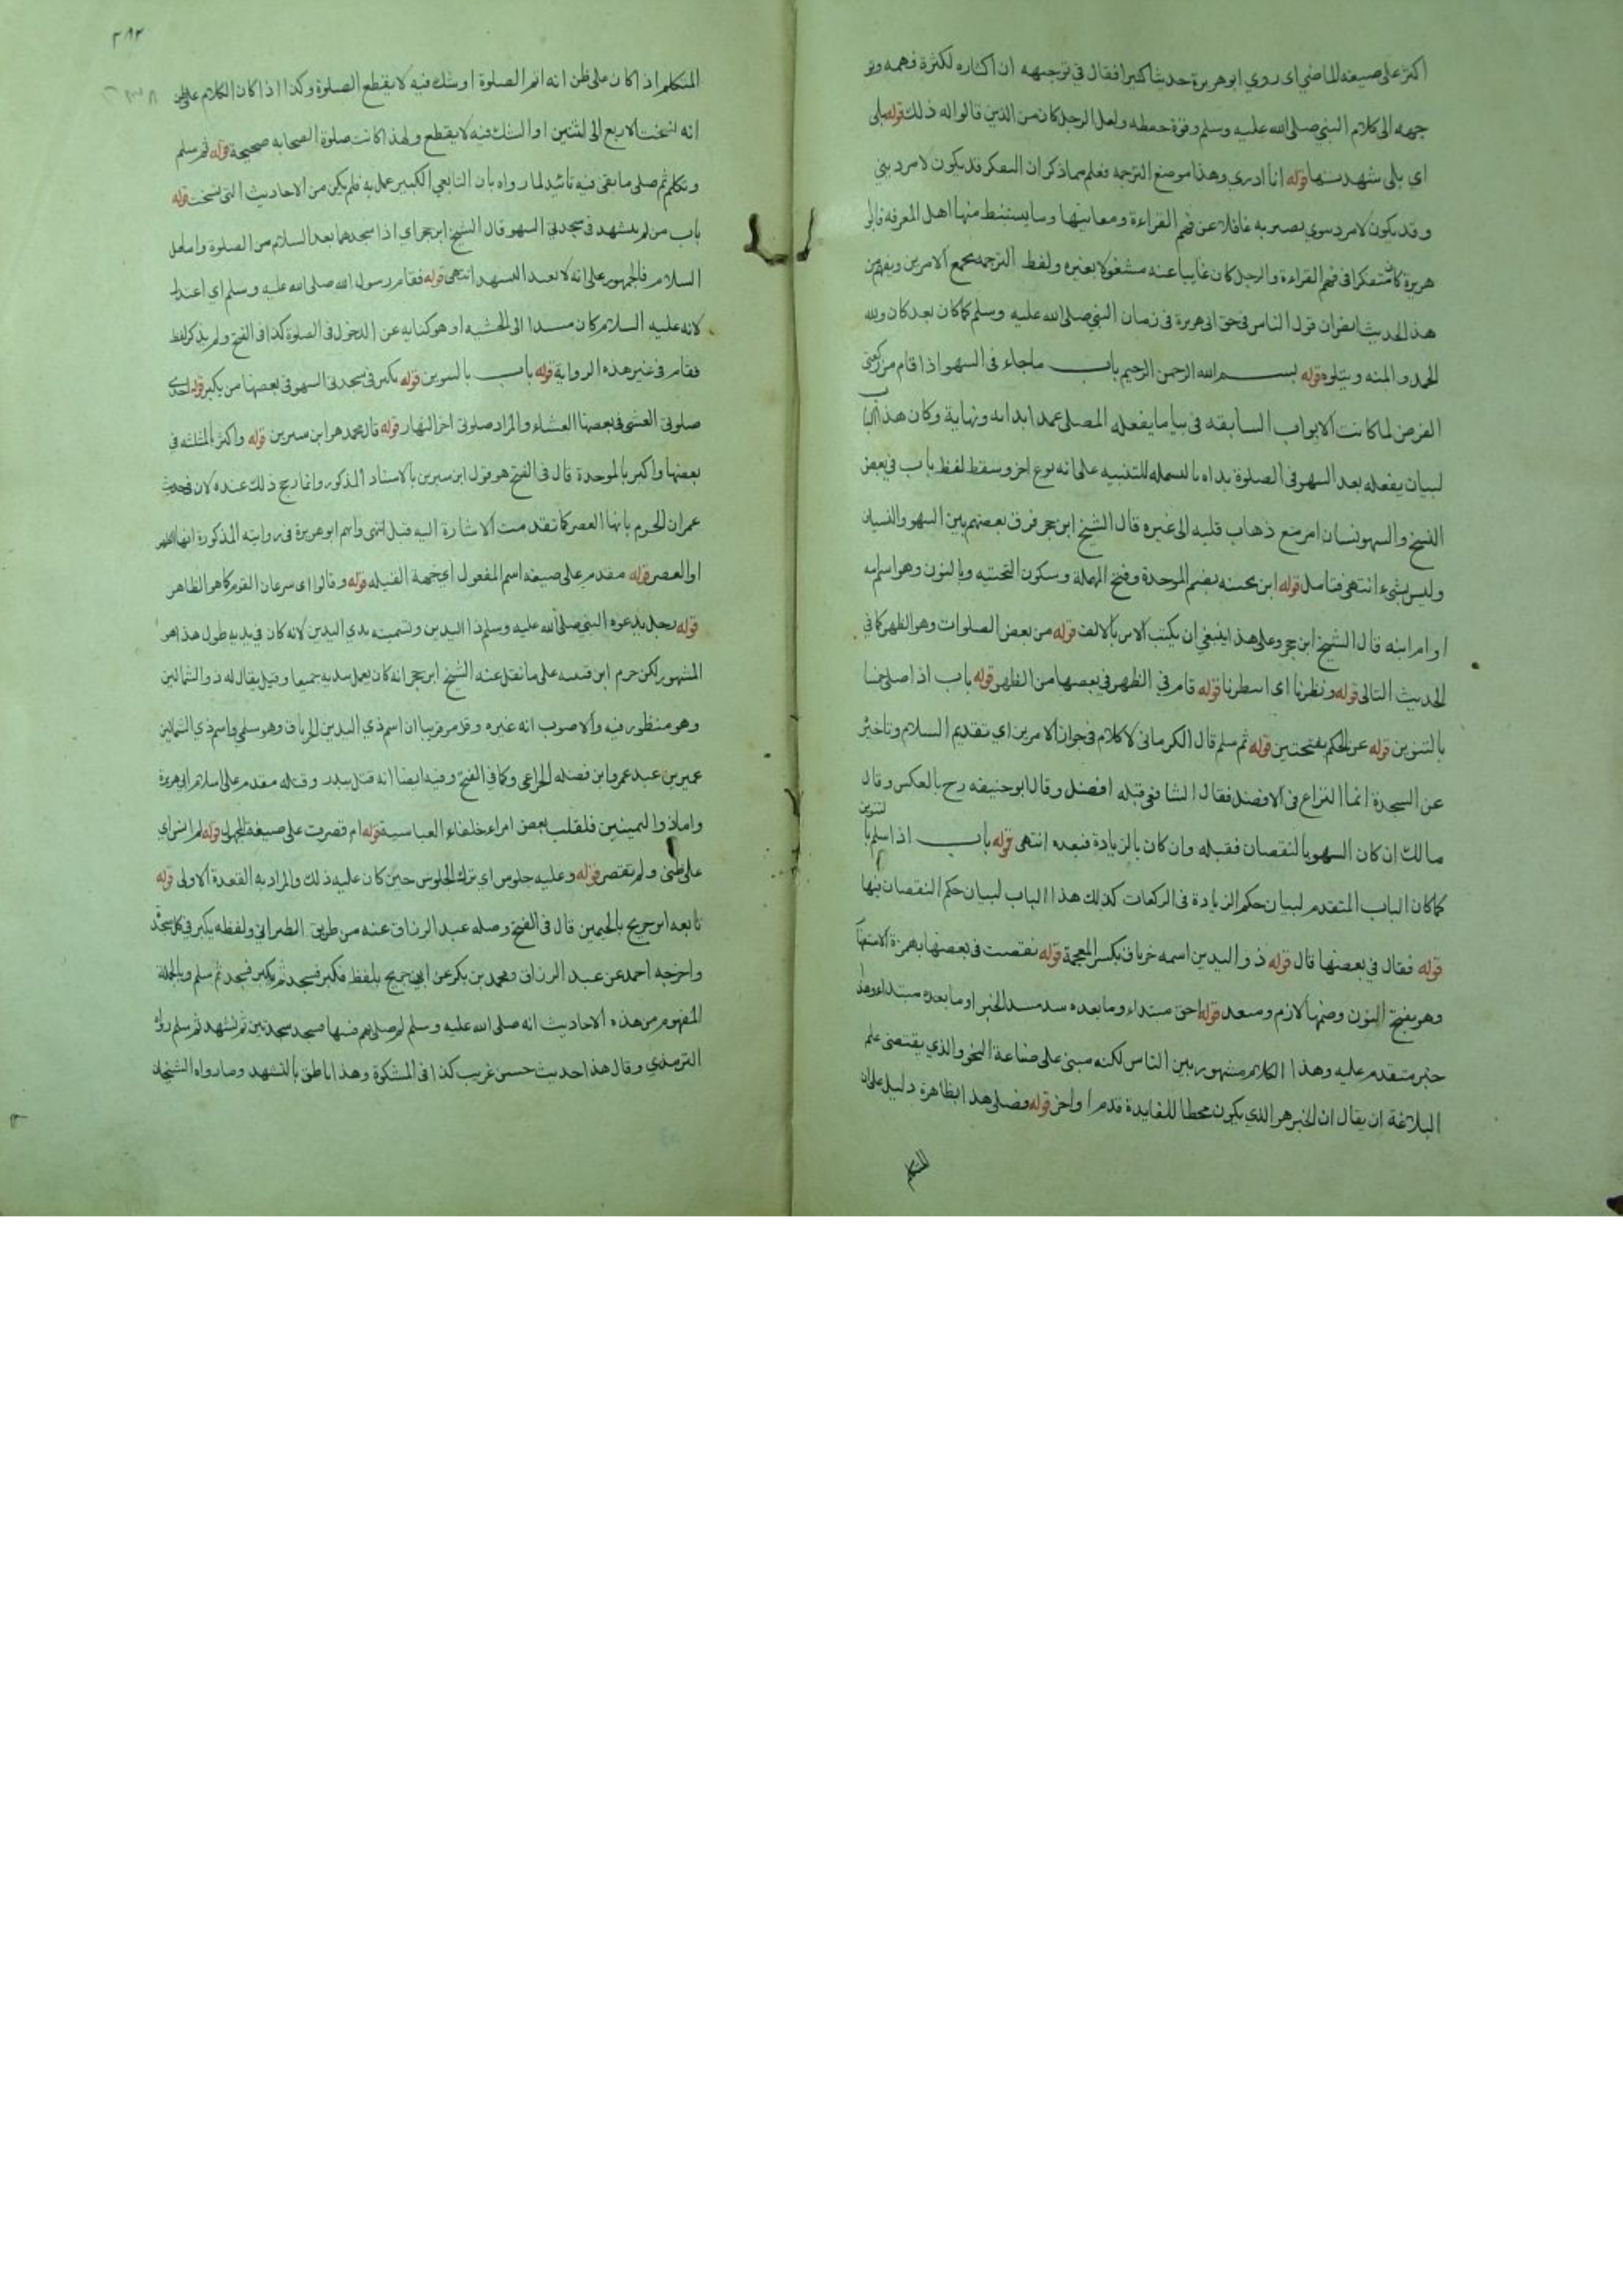 اكثر على صيغة الماضي اى روي ابو هريرة حديثا كثيرا فقال في توجيهه ان اكثاره لكثرة فهمه وتو
جهه الى كلام النبي صلى الله عليه وسلم وقوة حفظه ولعل الرجل كان من الذين قالوا له ذلك قوله بلى
اي بلى شهدتها قوله انا ادري وهذا موضع الترجمه فعلم بما ذكر ان التفكر قد يكون لامر ديني
وقد يكون لامر دنيوي يصير به غافلا عن فهم القراءة ومعانيها وما يستنبط منها اهل المعرفه فابو
هريرة كان متفكرا في فهم القراءة والرجل كان غايبا عنه مشغولا بغيره ولفظ الترجمه يجمع الامرين ويفهم من
هذا الحديث ايضا ان قول الناس في حق ابى هريرة فى زمان النبي صلى الله عليه وسلم كما كان بعد كان ولله
الحمد والمنه ويتلوه قوله بسم الله الرحمن الرحيم باب ماجاء فى السهو اذا قام من ركعتى
الفرض لما كانت الابواب السابقه فى بيان ما يفعله المصلى عمدا بداية ونهاية وكان هذا الباب
لبيان يفعله بعد السهو فى الصلوة بداه بالبسمله للتنبيه على انه نوع اخر وسقط لفظ باب في بعض
النسخ والسهو نسان امر مع ذهاب قلبه الى غيره قال الشيخ ابن حجر فرق بعضهم بين السهو والنسيان
وليس بشيء انتهى فتامل قوله ابن بحينه بضم الموحدة وفتح المهملة وسكون التحتيه وبالنون وهو اسم امه
او ام ابيه قال الشيخ ابن حجر وعلى هذا ينبغي ان يكتب الابن بالالف قوله من بعض الصلوات وهو الظهر كما في
الحديث التالى قوله ونظرنا اى انتظرنا قوله قام في الظهر في بعضها من الظهر قوله باب اذا صلى خمسا
بالتنوين قوله عن الحكم بفتحتين قوله ثم سلم قال الكرمانى لا كلام في جواز الامرين اي تقديم السلام وتاخير
عن السجدة انما النزاع فى الافضل فقال الشافعى قبله افضل وقال ابو حنيفه رح بالعكس وقال
مالك ان كان السهو بالنقصان فقبله وان كان بالزيادة فبعده انتهى قوله باب اذا سلم با
لتنوين
كما كان الباب المتقدم لبيان حكم الزيادة فى الركعات كذلك هذا الباب لبيان حكم النقصان فيها
قوله فقال في بعضها قال قوله ذو اليدين اسمه خرباق بكسر المعجمة قوله نقصت فى بعضها بهمزة الاستفها
وهو بفتح النون وضمها لازم ومتعد قوله احق مبتداء وما بعده سد مسد الخبر او ما بعده مبتداء وهذا
خبر متقدم عليه وهذا الكلام مشهور بين الناس لكنه مبنى على صناعة النحو والذي يقتضى علم
البلاغة ان يقال ان الخبر هو الذي يكون محطا للفايدة قدم او اخر قوله فصلى هذا بظاهره دليل على ان
المتكلم
٣٨٢
المتكلم اذا كان على ظن انه اتم الصلوة او شك فيه لا يقطع الصلوة وكذا اذا كان الكلام على ظن
انه نسخت الاربع الى اثنتين او الشك فيه لا يقطع ولهذا كانت صلوة الصحابه صحيحة قوله ثم سلم
وتكلم ثم صلى ما بقى فيه تائيد لما رواه بان التابعي الكبير عمل به فلم يكن من الاحاديث التى نسخت قوله
باب من لم يتشهد فى سجدتى السهو قال الشيخ ابن حجر اي اذا سجدهما بعد السلام من الصلوة واما قبل
السلام فالجمهور على انه لا يعيد التشهد انتهى قوله فقام رسول الله صلى الله عليه وسلم اي اعتدل
لانه عليه السلام كان مسندا الى الخشبه او هو كنايه عن الدخول فى الصلوة كذا فى الفتح ولم يذكر لفظ
فقام فى غير هذه الرواية قوله باب بالتنوين قوله يكبر فى سجدتى السهو فى بعضها من يكبر قوله احدى
صلوتى العشى فى بعضها العشاء والمراد صلوتى اخر النهار قوله قال محمد هو ابن سيرين قوله واكثر بالمثلثه في
بعضها واكبر بالموحدة قال فى الفتح هو قول ابن سيرين بالاسناد المذكور وانما رجح ذلك عنده لان فى حديث
عمران الجزم بانها العصر كما تقدمت الاشارة اليه قبل انتهى وابهم ابو هريرة فى روايته المذكورة انها الظهر
او العصر قوله مقدم على صيغه اسم المفعول اي جهة القبله قوله وقالوا اى سرعان القوم كما هو الظاهر
قوله رجل يدعوه النبي صلى الله عليه وسلم ذا اليدين وتسميته بذي اليدين لانه كان في يديه طول هذا هو
المشهور لكن جزم ابن قتيبه على ما نقل عنه الشيخ ابن حجر انه كان يعمل بيديه جميعا وقيل يقال له ذو الشمالين
وهو منظور فيه والاصوب انه غيره وقد مر قريبا ان اسم ذي اليدين الخرباق وهو سلمي واسم ذي الشمالين
عمير بن عبد عمرو ابن فضله الخزاعى وكما في الفتح وفيه ايضا انه قتل ببدر وقتله مقدم على اسلام ابى هريرة
واما ذو اليمينين فلقلب بعض امراء خلفاء العباسية قوله ام قصرت على صيغة المجهول قوله لم انس اي
على ظنى ولم تقصر قوله وعليه جلوس اي ترك الجلوس حين كان عليه ذلك والمراد به القعدة الاولى قوله
تابعه ابن جريج بالجيمين قال فى الفتح وصله عبد الرزاق عنه من طريق الطبراني ولفظه يكبر في كل سجدة
واخرجه احمد عن عبد الرزاق ومحمد بن بكر عن ابن جريج بلفظ فكبر فسجد ثم كبر فسجد ثم سلم وبالجملة
المفهوم من هذه الاحاديث انه صلى الله عليه وسلم فسجد سجدتين ثم تشهد ثم سلم رواه
الترمذي وقال هذا حديث حسن غريب كذا فى المشكوة وهذا ناطق بالتشهد وما رواه الشيخان